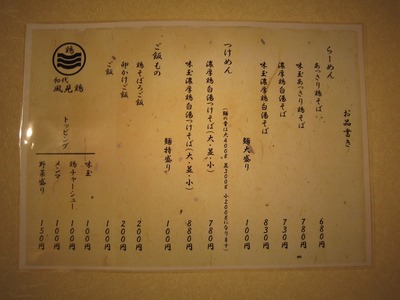 お品書き
らーめん
あっさり鶏そば 680円
味玉あっさり鶏そば 780円
濃厚鶏白湯そば 730円
味玉濃厚鶏白湯そば 830円
麺大盛り 100円
つけめん
(麺の量は大400g 並300g 小200gになります)
濃厚鶏白湯つけそば(大・並・小) 780円
味玉濃厚鶏白湯つけそば(大・並・小) 880円
麺特盛り 100円
ご飯もの
鶏そぼろご飯 200円
卵かけご飯 200円
ご飯 100円
鶏
初代
風見鶏
トッピング
味玉 100円
鶏チャーシュー 100円
メンマ 100円
野菜盛り 150円